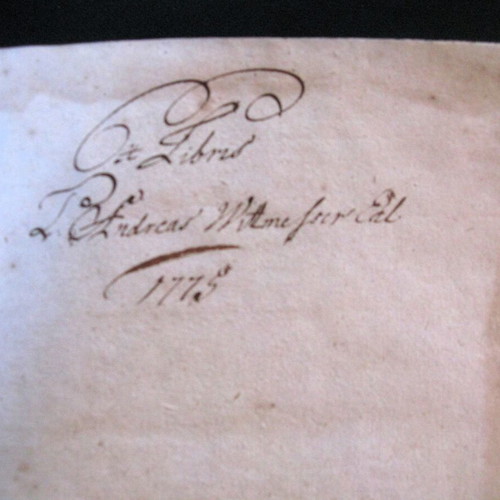 Ex Libris
P. Andreas Wittmesser Cal
1775